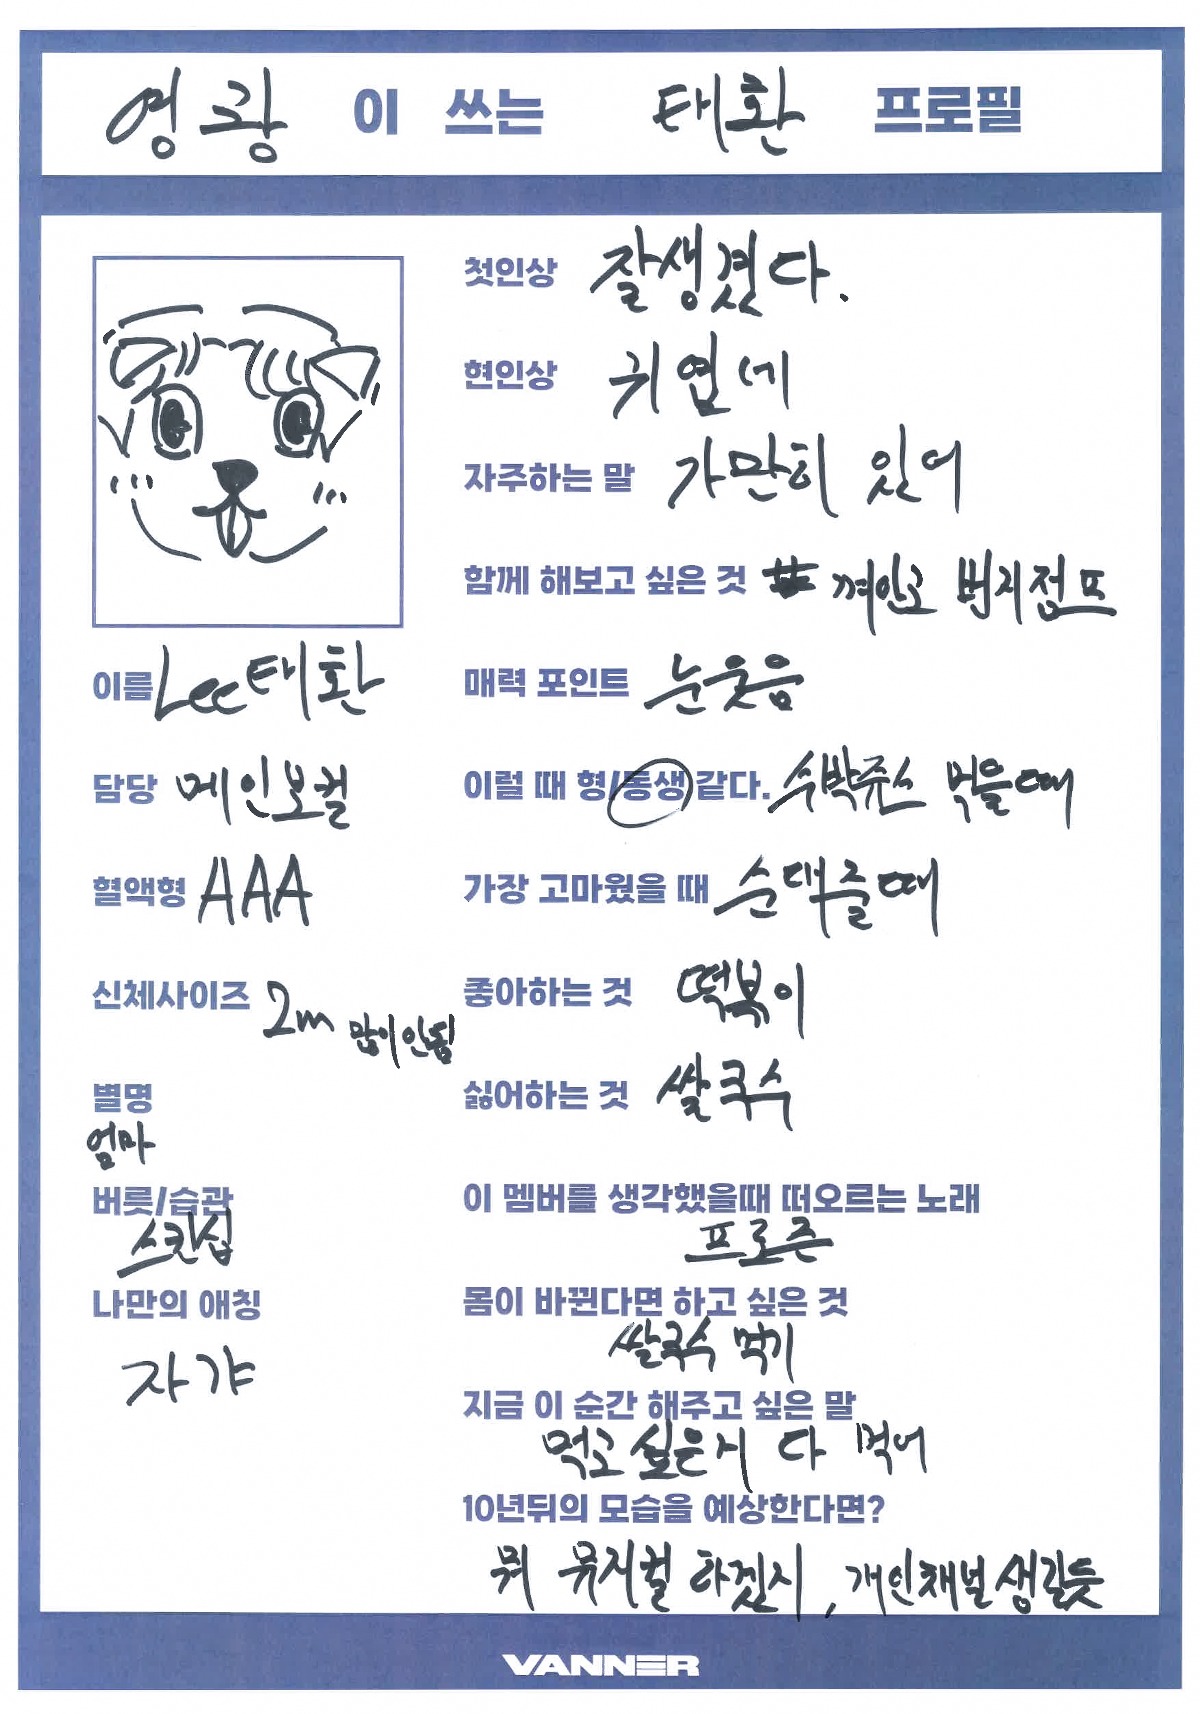 영광 이 쓰는 태환 프로필
첫인상 잘생겼다.
현인상 귀엽네
자주하는 말 가만히 있어
함께 해보고 싶은 것 껴안고 번지점프
이름 Lee태환
매력 포인트 눈웃음
담당 메인보컬
이럴 때 형/동생 같다. 수박쥬스 먹을때
혈액형 AAA
가장 고마웠을 때 순대줄때
신체사이즈 2m 많이 안됨
좋아하는 것 떡볶이
별명
엄마
싫어하는 것 쌀국수
버릇/습관
스킨십
이 멤버를 생각했을때 떠오르는 노래
프로즌
나만의 애칭
자갸
몸이 바뀐다면 하고 싶은 것
쌀국수 먹기
지금 이 순간 해주고 싶은 말
먹고 싶은거 다 먹어
10년뒤의 모습을 예상한다면?
뭐 뮤지컬 하겠지, 개인채널 생길듯
VANNER